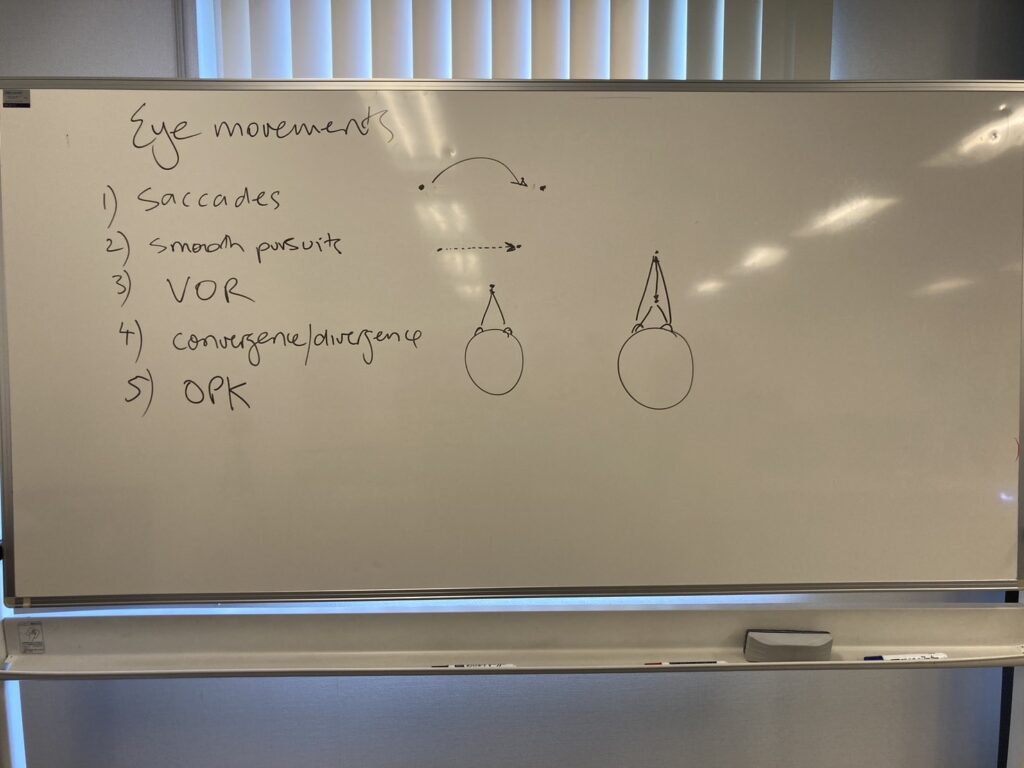 Eye movements
1) Saccades
2) smooth pursuits
3) VOR
4) convergence/divergence
5) OPK